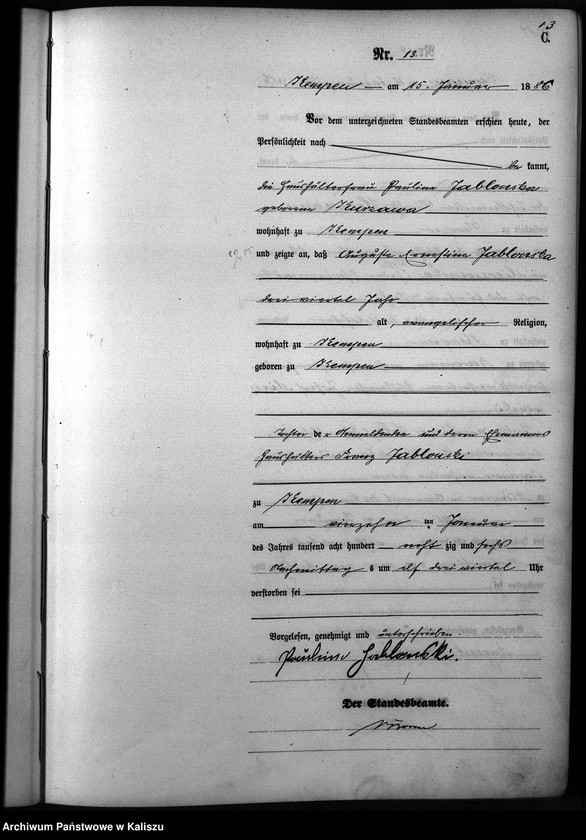 13
C.
Nr. 13.
Kempen am 15. Januar 1886
Vor dem unterzeichneten Standesbeamten erschien heute, der
Persönlichkeit nach
be kannt,
die Haushälterfrau Pauline Jablonska
geborene Kurzawa
wohnhaft zu Kempen
und zeigte an, daß Auguste Ernestine Jablonska
drei viertel Jahr
alt, evangelischer Religion,
wohnhaft zu Kempen
geboren zu Kempen
Tochter der Anmeldenden und deren Ehemannes
Haushälters Franz Jablonski
zu Kempen
am vierzehn ten Januar
des Jahres tausend acht hundert acht zig und sechs
Nachmittags um elf drei viertel Uhr
verstorben sei
Vorgelesen, genehmigt und unterschrieben.
Pauline Jablonski.
Der Standesbeamte.
Archiwum Państwowe w Kaliszu